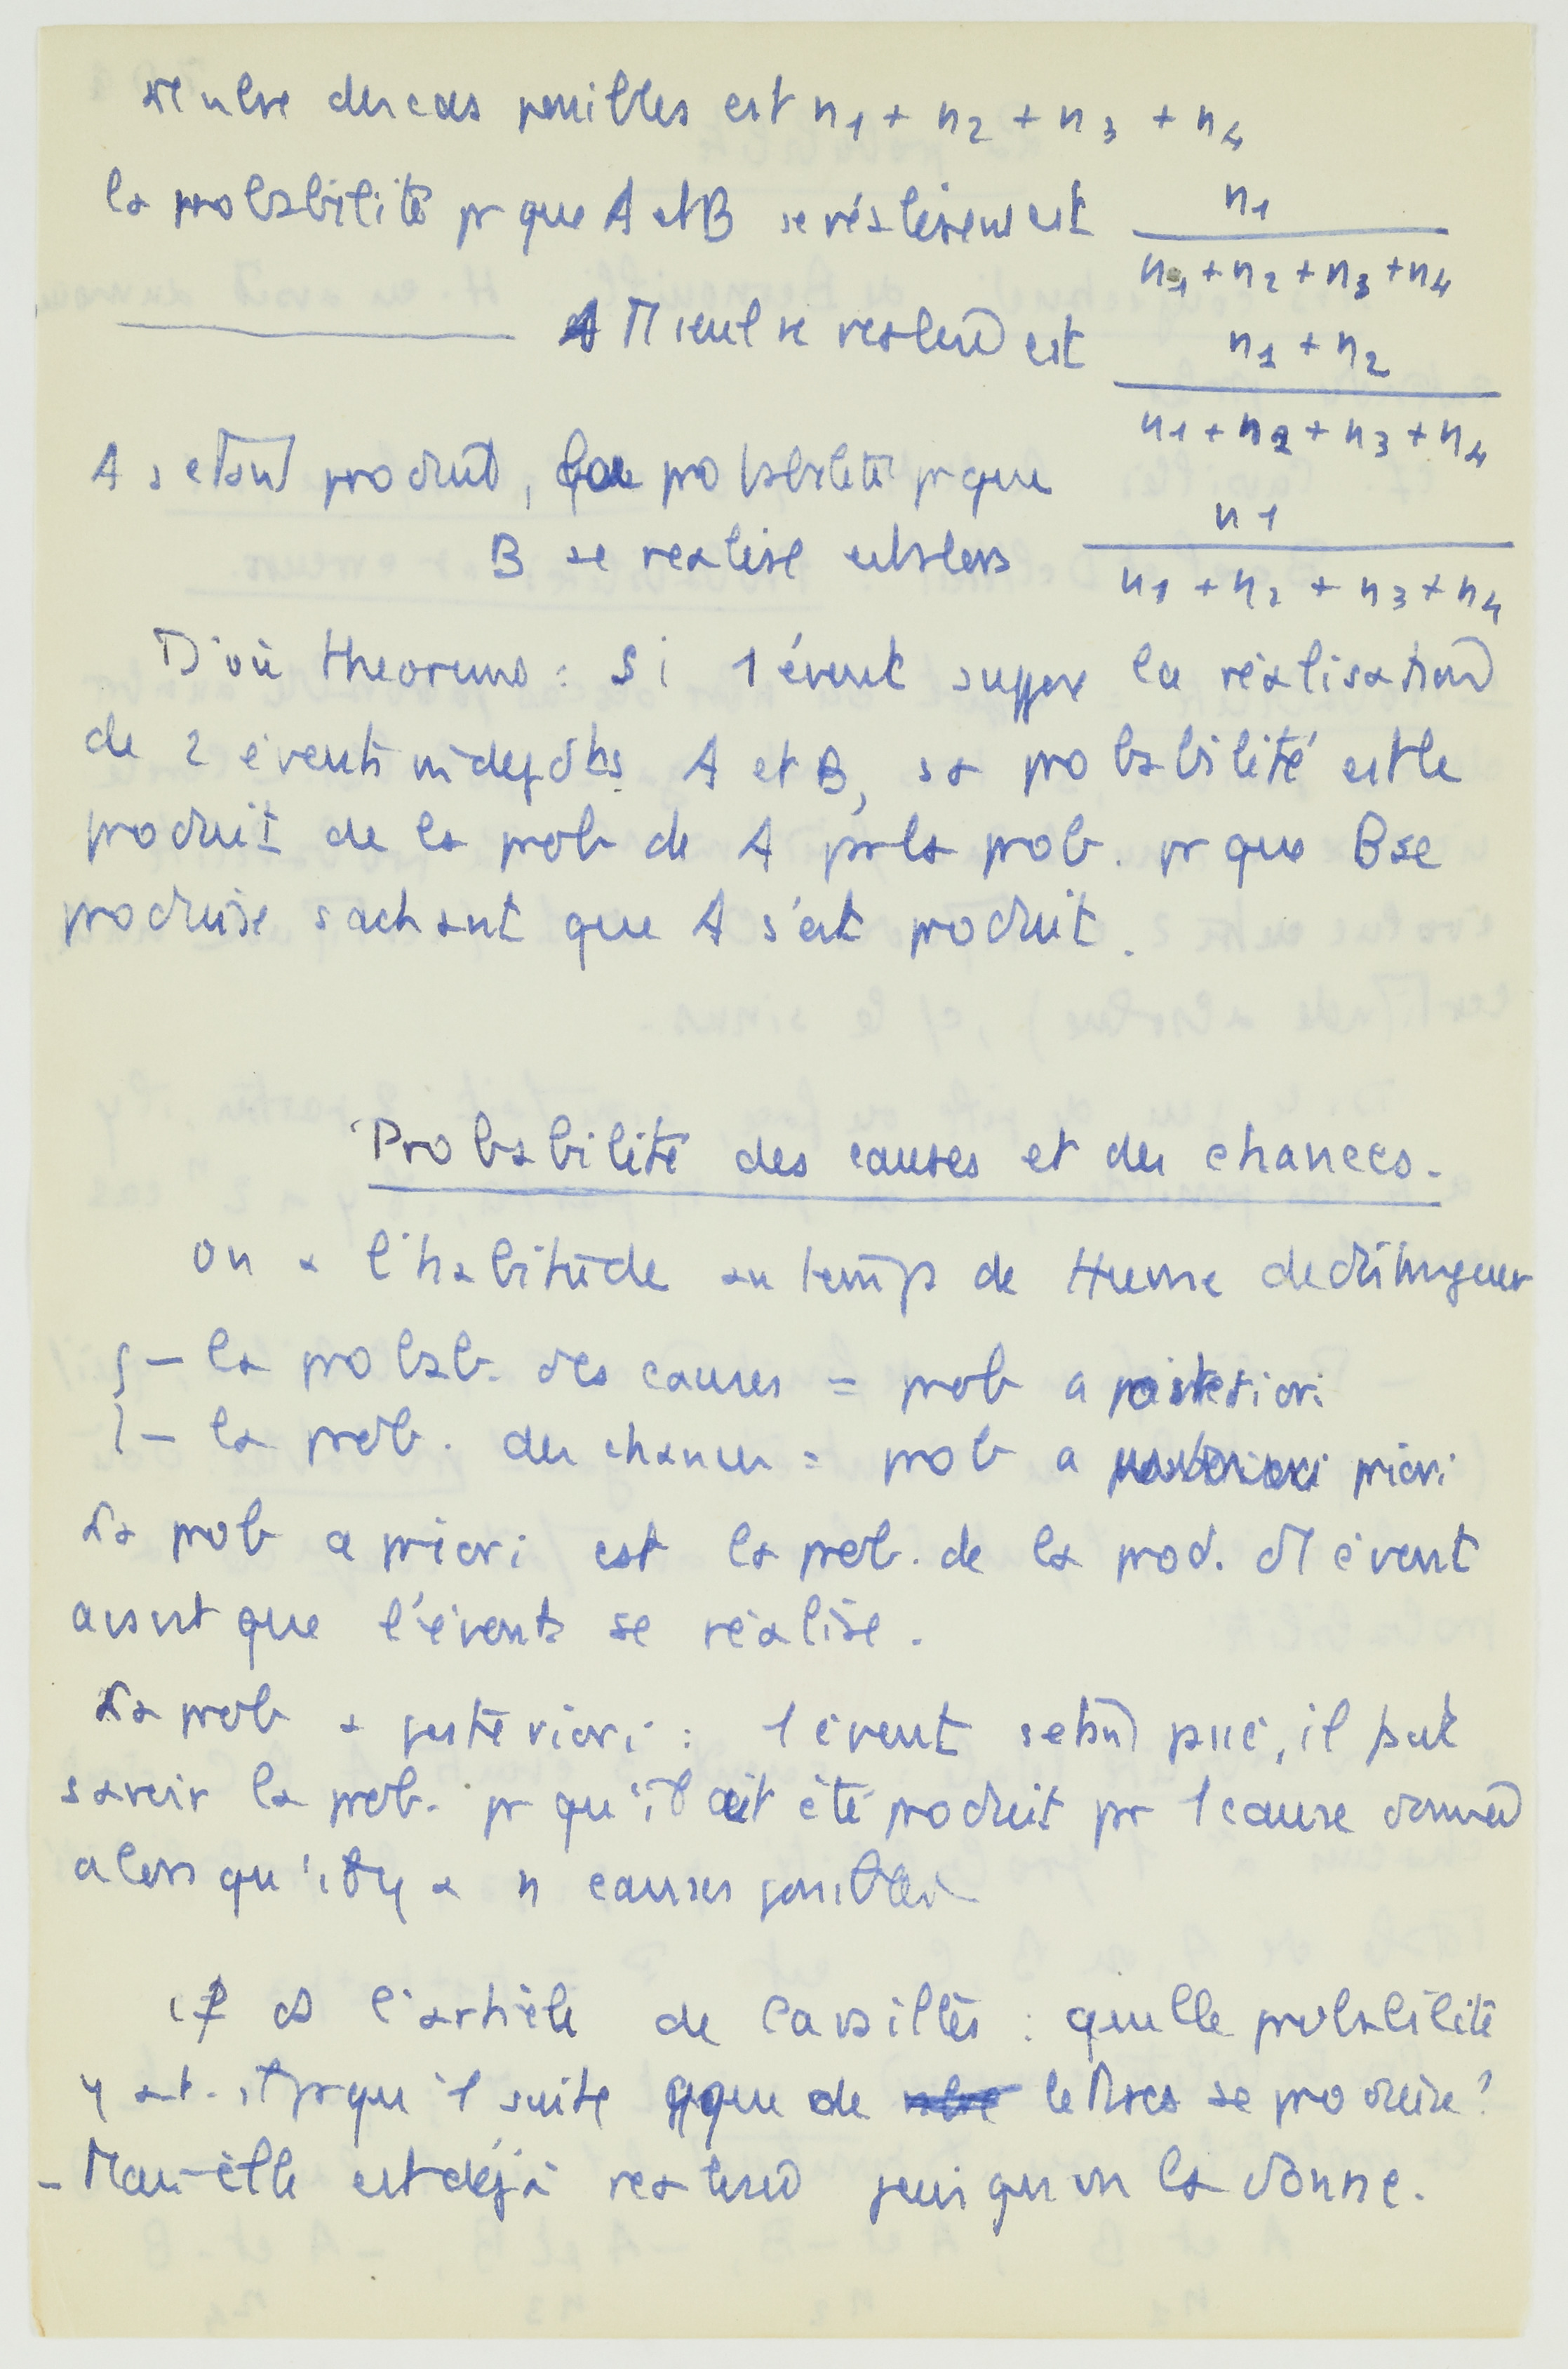 le nbre des cas possibles est n1 + n2 + n3 + n4
la probabilité pr que A et B se réalisent est n1 / n1 + n2 + n3 + n4
A seul se réalise est n1 + n2 / n1 + n2 + n3 + n4
A s'étant produit, la probabilité pr que
B se réalise est alors n1 / n1 + n2 + n3 + n4
D'où theoreme : Si 1 évent suppose la réalisation
de 2 évents indepdts A et B, sa probabilité est le
produit de la prob de A par la prob. pr que B se
produise sachant que A s'est produit.
Probabilité des causes et des chances.
on a l'habitude au temps de Hume de distinguer
- la probab. des causes = prob a posteriori
- la prob. des chances = prob a priori
La prob a priori est la prob. de la prod. d'1 évent
avant que l'évent se réalise.
La prob a posteriori : 1 évent s'étant , il faut
savoir la prob. pr qu'il ait été produit pr 1 cause donnée
alors qu'il y a n causes possibles
cf l'article de Cavaillès : quelle probabilité
y a-t-il pr qu'1 suite qque de lettres se produise ?
- Mais elle est déjà réalisée puisqu'on la donne.